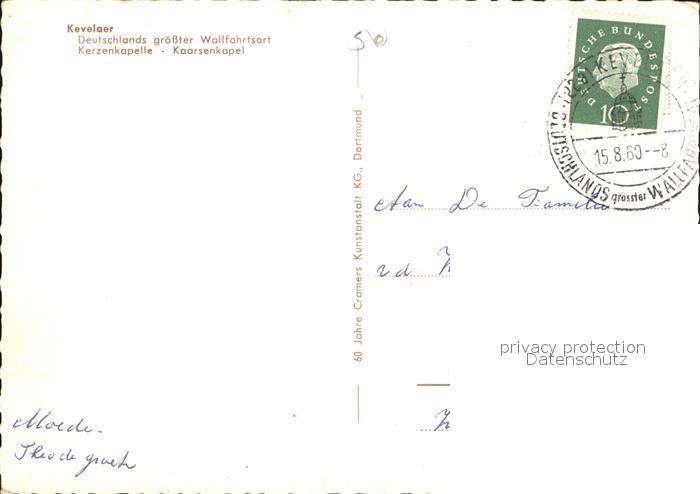 Kevelaer
Deutschlands größter Wallfahrtsort
Kerzenkapelle - Kaarsenkapel
50
60 Jahre Cramers Kunstanstalt KG., Dortmund
DEUTSCHE BUNDESPOST
10
15.8.60--8
DEUTSCHLANDS grösster
Aan De Familie
vd
privacy protection
Datenschutz
Moede.
Theo de